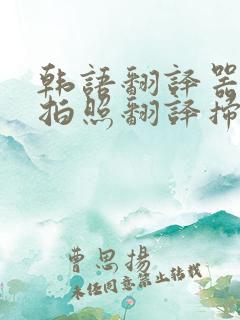 韩語翻譯器
拍照翻譯掃
曹思揚
未经同意禁止转载